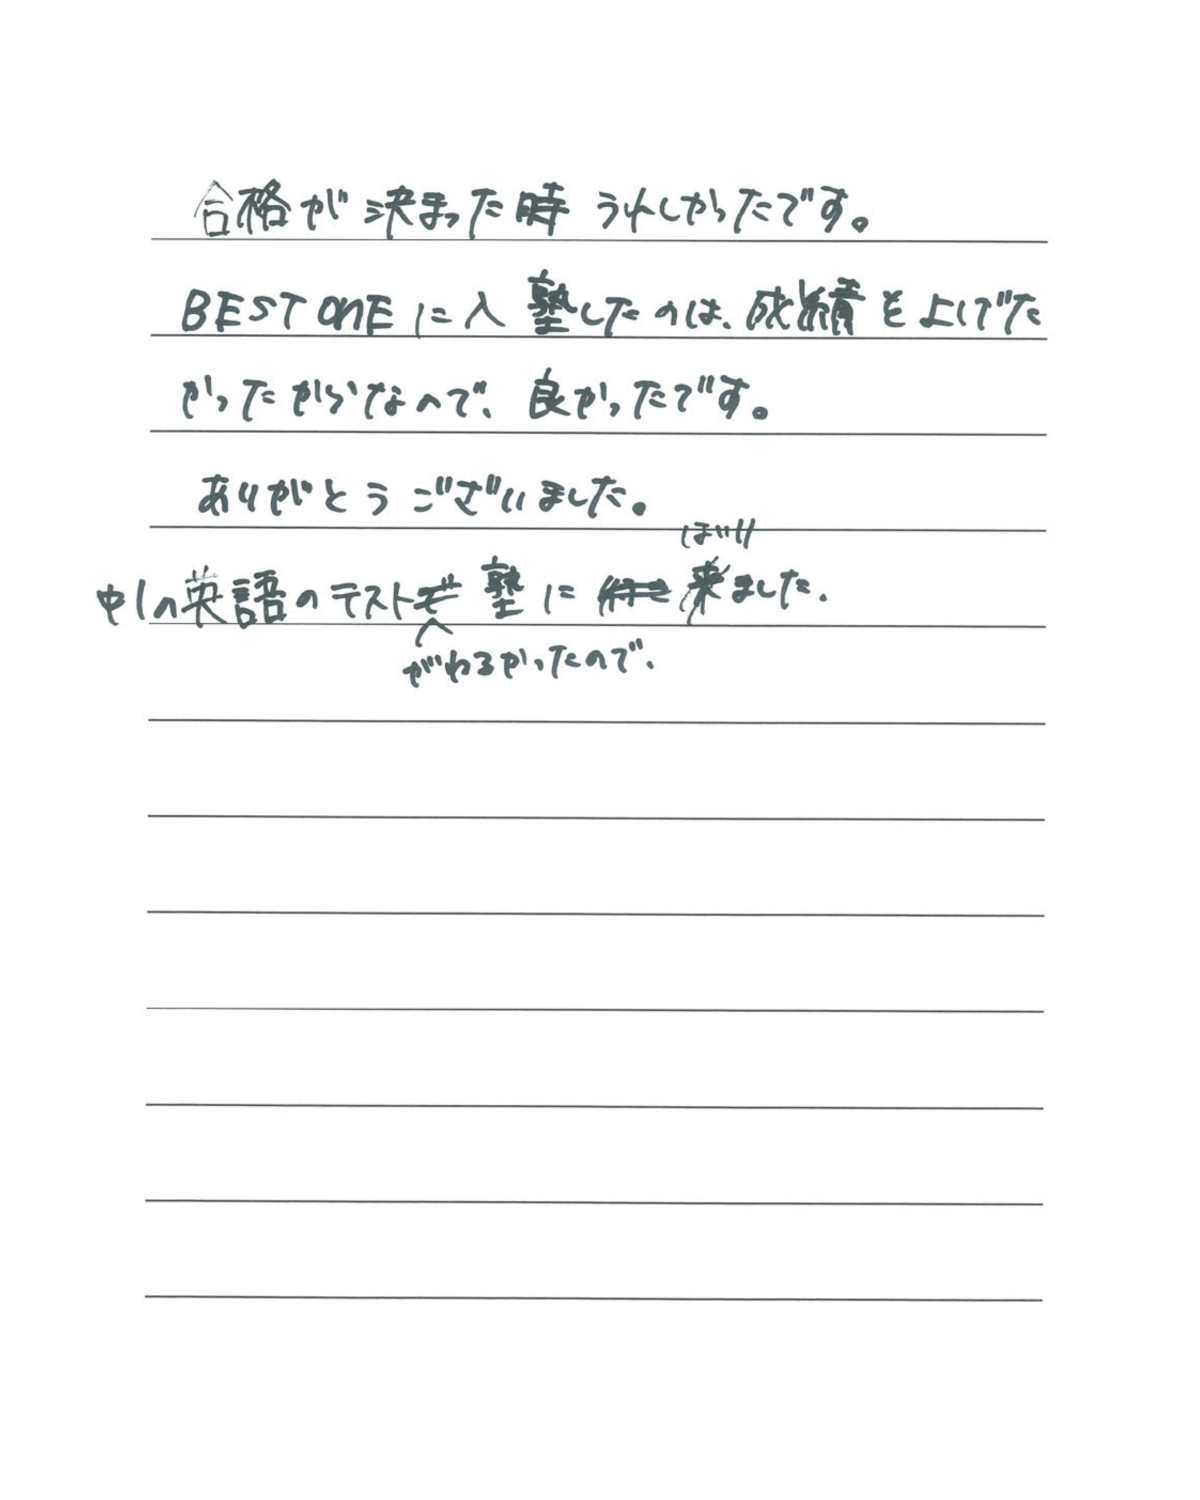 合格が決まった時うれしかったです。
BEST ONEに入塾したのは、成績を上げた
かったからなので、良かったです。
ありがとうございました。
はいり
中1の英語のテスト塾に来ました.
がわるかったので、